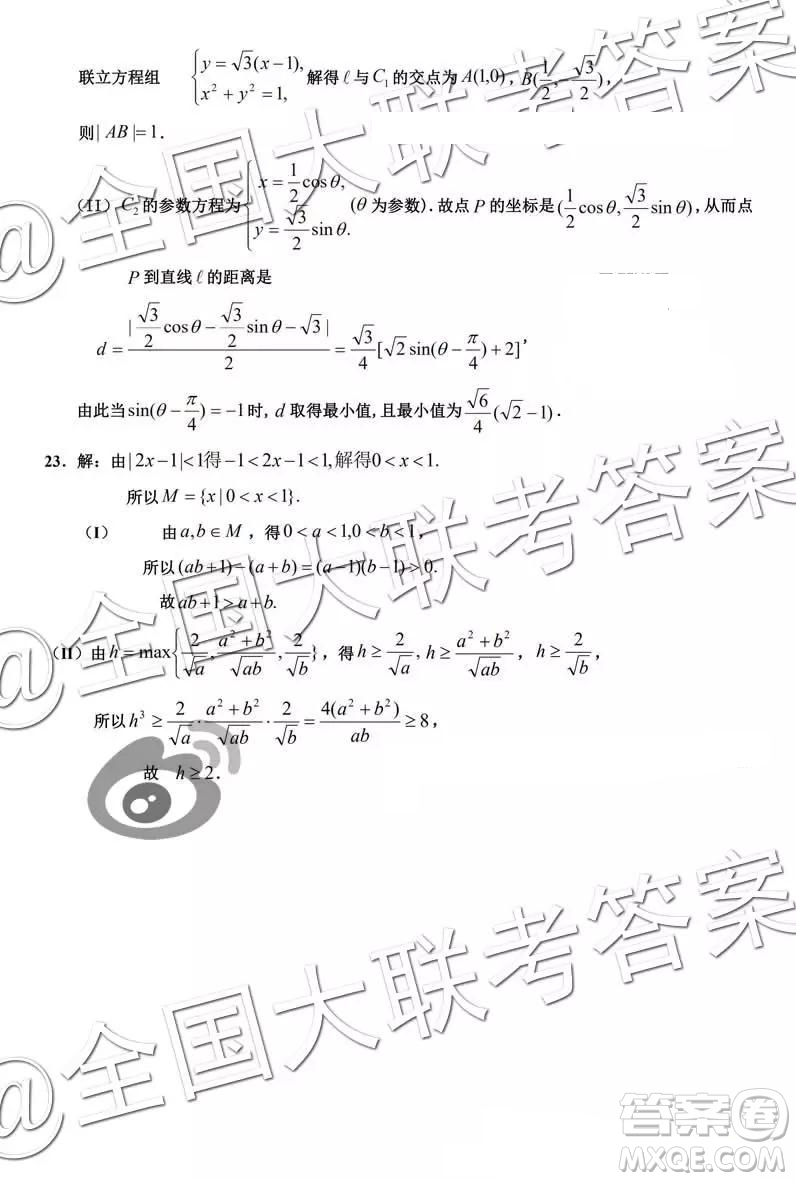 联立方程组 {y=√3(x−1), x²+y²=1, 解得ℓ与C₁的交点为A(1,0)，B(1/2,−√3/2)，
则|AB|=1．
（II）C₂的参数方程为{x=1/2cosθ, y=√3/2sinθ. (θ为参数)．故点P的坐标是(1/2cosθ,√3/2sinθ)，从而点
P到直线ℓ的距离是
d=|√3/2cosθ−√3/2sinθ−√3|/2=√3/4[√2sin(θ−π/4)+2]，
由此当sin(θ−π/4)=−1时，d取得最小值，且最小值为√6/4(√2−1)．
23．解：由|2x−1|<1得−1<2x−1<1,解得0<x<1.
所以M={x|0<x<1}.
（I） 由a,b∈M，得0<a<1,0<b<1，
所以(ab+1)−(a+b)=(a−1)(b−1)>0.
故ab+1>a+b.
（II）由h=max{2/√a,(a²+b²)/√ab,2/√b}，得h≥2/√a，h≥(a²+b²)/√ab，h≥2/√b，
所以h³≥2/√a·(a²+b²)/√ab·2/√b=4(a²+b²)/ab≥8，
故 h≥2．
@全国大联考答案
@全国大联考答案
@全国大联考答案
答案卷
MXQE.COM